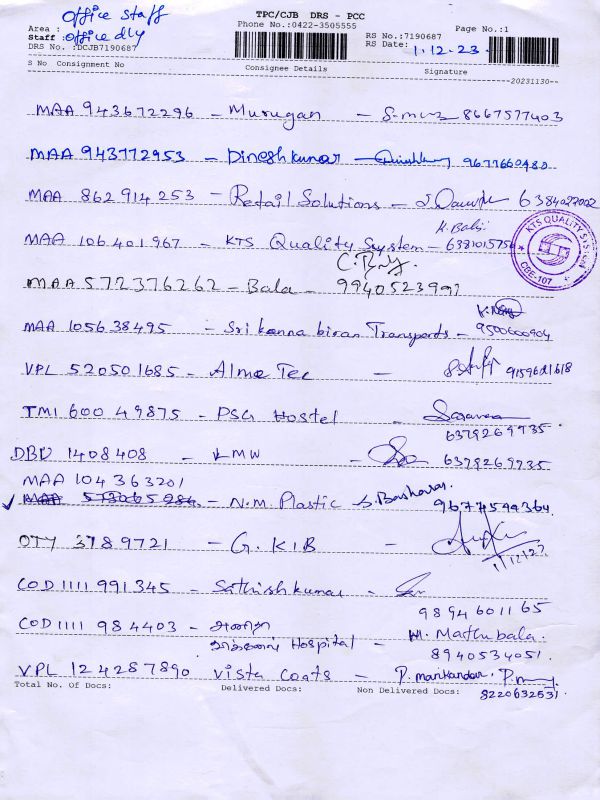 TPC/CJB DRS - PCC
Phone No:0422-3505555
Page No.:1
Office staff
Area :
Staff : office dly
DRS No. :DCJB7190687
RS No.:7190687
RS Date: 1.12.23
S No Consignment No Consignee Details Signature
20231130
MAA 943672296 - Murugan - 8667577403
MAA 943772953 - Dineshkumar - 9677660480
MAA 862914253 - Retail Solutions - 6384027002
K. Balaji
MAA 106401967 - KTS Quality System -
KTS QUALITY SYSTEM
CBE-107
MAA 572376262 - Bala -
MAA 105638495 - Sri kanna biran Transports - 9500600904
VPL 520501685 - Alma Tec -
TMI 600 49875 - PSG Hostel - Saravana
6379269735
DBD 1408408 - KMW - 6379269735
MAA 104363201
MAA 573065984 - N.M. Plastic - S. Baskaran
9677544364
OTY 3789721 - G. KIB -
1/12/23
COD 1111 991345 - Sathishkumar -
98946011 65
COD 1111 984403 -
Hospital - M. Mathubala
8940534051
VPL 124287890 Vista Coats - P. manikandan
Total No. Of Docs: Delivered Docs: Non Delivered Docs:
8220632531